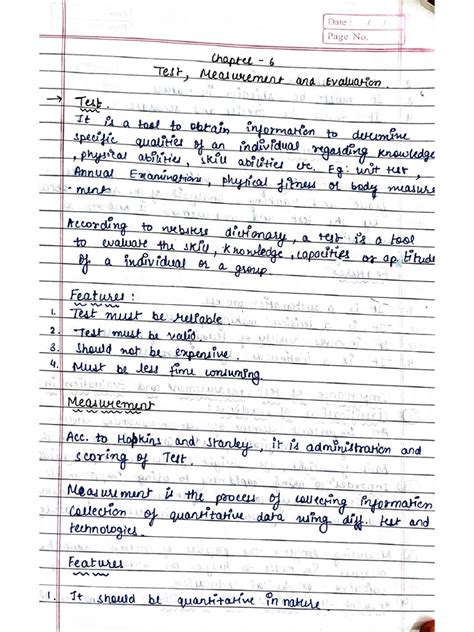 Date : / /
Page No.
Chapter - 6
Test, Measurement and Evaluation.
→ Test.
It is a tool to obtain information to determine
specific qualities of an individual regarding knowledge
, physical abilities, skill abilities etc. Eg: unit test,
Annual Examinations, physical fitness or body measure
ment.
According to websters dictionary, a test is a tool
to evaluate the skill, knowledge, capacities or aptitude
of a individual or a group.
Features :
1. Test must be reliable.
2. Test must be valid.
3. Should not be expensive.
4. Must be less time consuming.
Measurement
Acc. to Hopkins and Stanley, it is administration and
scoring of Test.
Measurement is the process of collecting information
collection of quantitative data using diff. test and
technologies.
Features
1. It should be quantitative in nature.